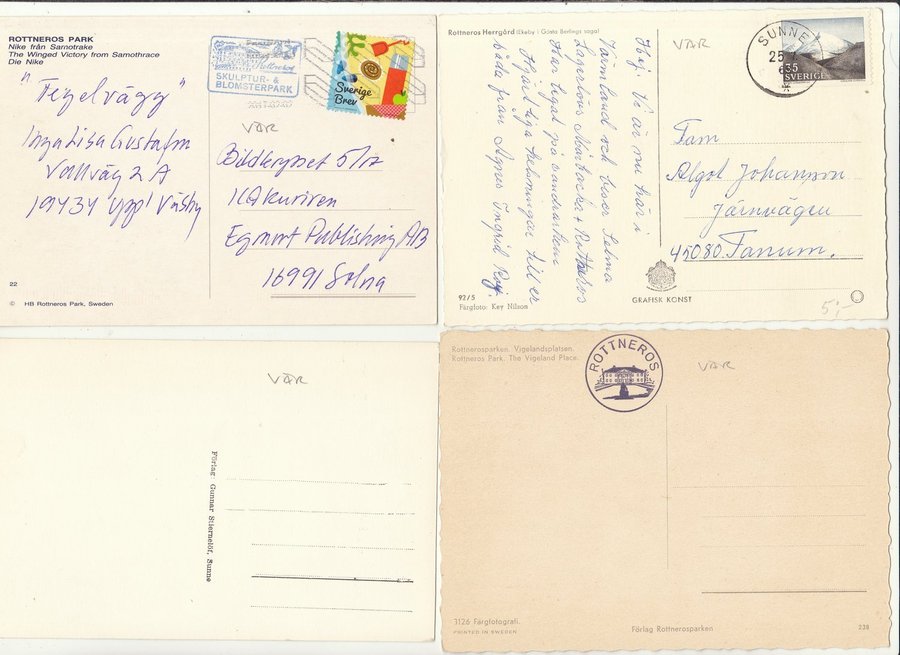 ROTTNEROS PARK
Nike från Samotrake
The Winged Victory from Samothrace
Die Nike
Rottneros
SKULPTUR- &
BLOMSTERPARK
Sverige
Brev
VÄR
"Tegelvägg"
IngaLisa Gustafsn
Vallväg 2A
19434 Uppl Väsby
Bildkrysset 5/12
ICAkuriren
Egmont Publishing AB
16991 Solna
22
© HB Rottneros Park, Sweden
Rottneros Herrgård (Ekeby i Gösta Berlings saga)
VÄR
SUNNE
25
35
SVERIGE
Hej. Vi är nu här i
Värmland och besar Selma
Lagerlövs Mårbacka + Rottneros
Har legat på vandrarhem
Hjärtliga hälsningar till er
båda från Agnes Ingrid
Fam
Algot Johansson
Järnvägen
45080 Tanum.
92/5
Färgfoto: Key Nilson
GRAFISK KONST
5:-
VÄR
Förlag: Gunnar Stiernelöf, Sunne
Rottnerosparken. Vigelandsplatsen.
Rottneros Park. The Vigeland Place.
ROTTNEROS
VÄR
3126 Färgfotografi.
PRINTED IN SWEDEN
Förlag Rottnerosparken
238